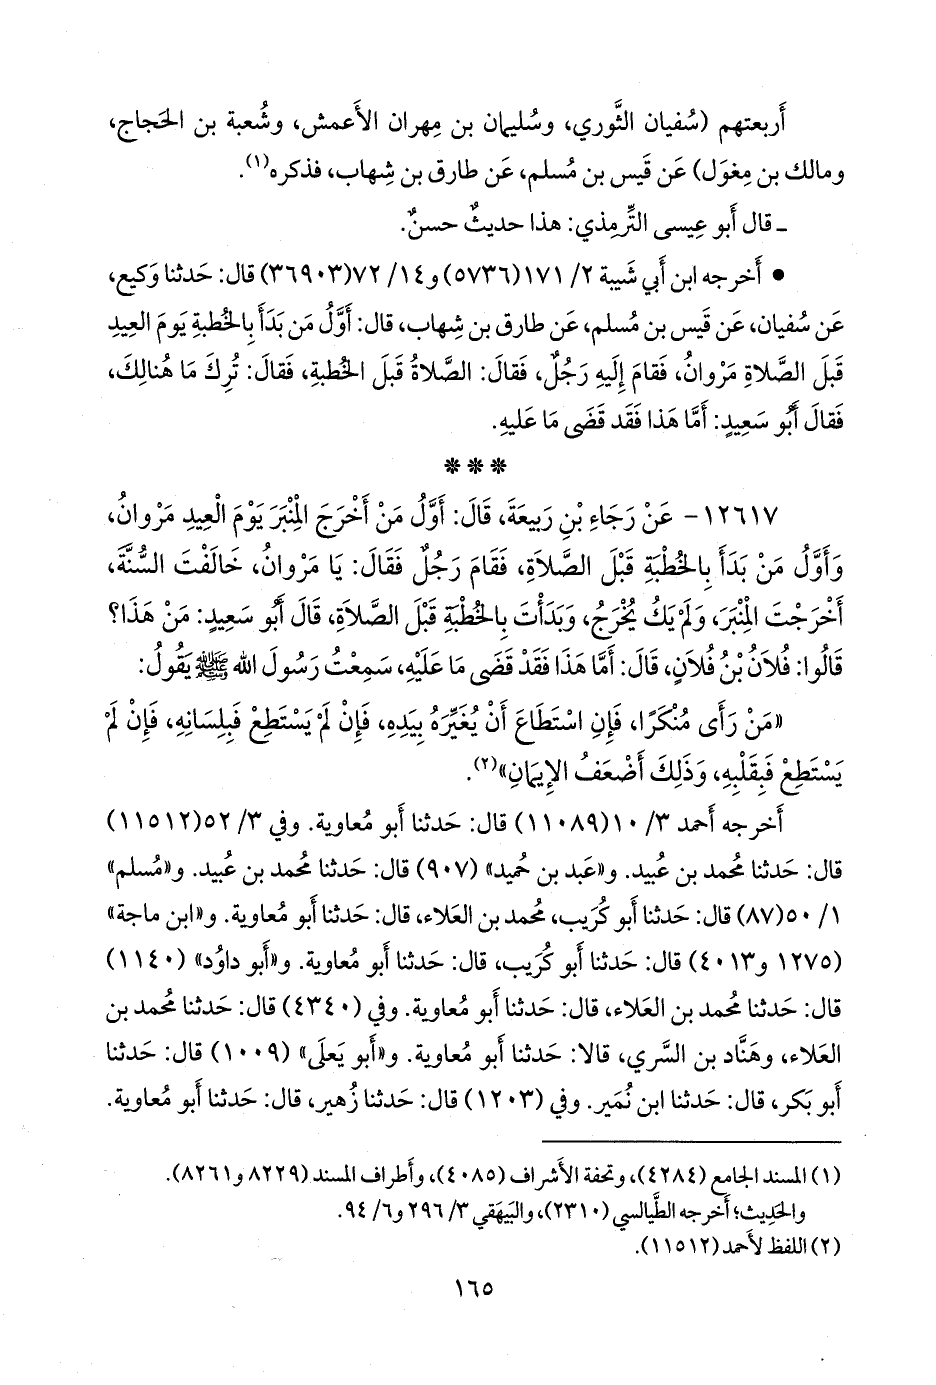 أَربعتهم (سُفيان الثَّوري، وسُليمان بن مِهران الأَعمش، وشُعبة بن الحَجاج،
ومالك بن مِغوَل) عَن قَيس بن مُسلم، عَن طارق بن شِهاب، فذكره(١).
ـ قال أَبو عِيسى التِّرمِذي: هذا حديثٌ حسنٌ.
• أَخرجه ابن أَبي شَيبة ٢/ ١٧١(٥٧٣٦) و١٤/ ٧٢(٣٦٩٠٣) قال: حَدثنا وَكيع،
عَن سُفيان، عَن قَيس بن مُسلم، عَن طارق بن شِهاب، قال: أَوَّلُ مَن بَدَأَ بِالخُطبةِ يَومَ العِيدِ
قَبلَ الصَّلاةِ مَروانُ، فَقامَ إِلَيهِ رَجُلٌ، فَقالَ: الصَّلاةُ قَبلَ الخُطبةِ، فَقالَ: تُرِكَ مَا هُنالِكَ،
فَقالَ أَبُو سَعِيدٍ: أَمَّا هَذا فَقَد قَضَى مَا عَليهِ.
***
١٢٦١٧- عَنْ رَجَاءِ بْنِ رَبِيعَةَ، قَالَ: أَوَّلُ مَنْ أَخْرَجَ الْمِنْبَرَ يَوْمَ الْعِيدِ مَرْوانُ،
وَأَوَّلُ مَنْ بَدَأَ بِالخُطْبَةِ قَبْلَ الصَّلاَةِ، فَقَامَ رَجُلٌ فَقَالَ: يَا مَرْوانُ، خَالَفْتَ السُّنَّةَ،
أَخْرَجْتَ الْمِنْبَرَ، وَلَمْ يَكُ يُخْرَجُ، وَبَدَأْتَ بِالخُطْبَةِ قَبْلَ الصَّلاَةِ، قَالَ أَبُو سَعِيدٍ: مَنْ هَذَا؟
قَالُوا: فُلاَنُ بْنُ فُلاَنٍ، قَالَ: أَمَّا هَذَا فَقَدْ قَضَى مَا عَلَيْهِ، سَمِعْتُ رَسُولَ الله ﷺ يَقُولُ:
«مَنْ رَأَى مُنْكَرًا، فَإِنِ اسْتَطَاعَ أَنْ يُغَيِّرَهُ بِيَدِهِ، فَإِنْ لَمْ يَسْتَطِعْ فَبِلِسَانِهِ، فَإِنْ لَمْ
يَسْتَطِعْ فَبِقَلْبِهِ، وَذَلِكَ أَضْعَفُ الإِيمَانِ»(٢).
أَخرجه أَحمد ٣/ ١٠(١١٠٨٩) قال: حَدثنا أَبو مُعاوية. وفي ٣/ ٥٢(١١٥١٢)
قال: حَدثنا مُحمد بن عُبيد. و«عَبد بن حُميد» (٩٠٧) قال: حَدثنا مُحمد بن عُبيد. و«مُسلم»
١/ ٥٠(٨٧) قال: حَدثنا أَبو كُرَيب، مُحمد بن العَلاء، قال: حَدثنا أَبو مُعاوية. و«ابن ماجة»
(١٢٧٥ و٤٠١٣) قال: حَدثنا أَبو كُرَيب، قال: حَدثنا أَبو مُعاوية. و«أَبو داوُد» (١١٤٠)
قال: حَدثنا مُحمد بن العَلاء، قال: حَدثنا أَبو مُعاوية. وفي (٤٣٤٠) قال: حَدثنا مُحمد بن
العَلاء، وهَنَّاد بن السَّري، قالا: حَدثنا أَبو مُعاوية. و«أَبو يَعلَى» (١٠٠٩) قال: حَدثنا
أَبو بَكر، قال: حَدثنا ابن نُمَير. وفي (١٢٠٣) قال: حَدثنا زُهير، قال: حَدثنا أَبو مُعاوية.
(١) المسند الجامع (٤٢٨٤)، وتحفة الأَشراف (٤٠٨٥)، وأَطراف المسند (٨٢٢٩ و٨٢٦١).
والحَدِيث؛ أَخرجه الطَّيالسي (٢٣١٠)، والبَيهَقي ٣/ ٢٩٦ و٦/ ٩٤.
(٢) اللفظ لأَحمد (١١٥١٢).
١٦٥